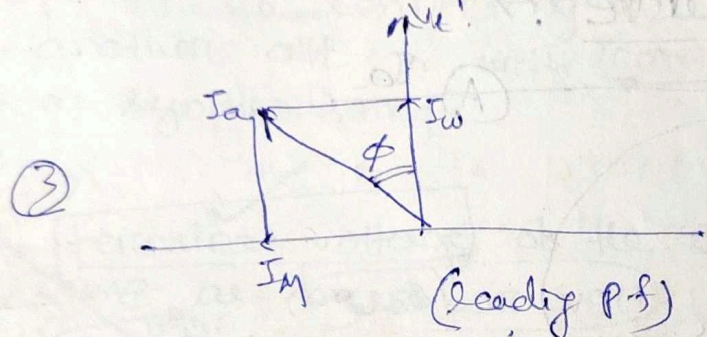 Vt
Ia
Iω
ϕ
③
IM
(leading p.f)